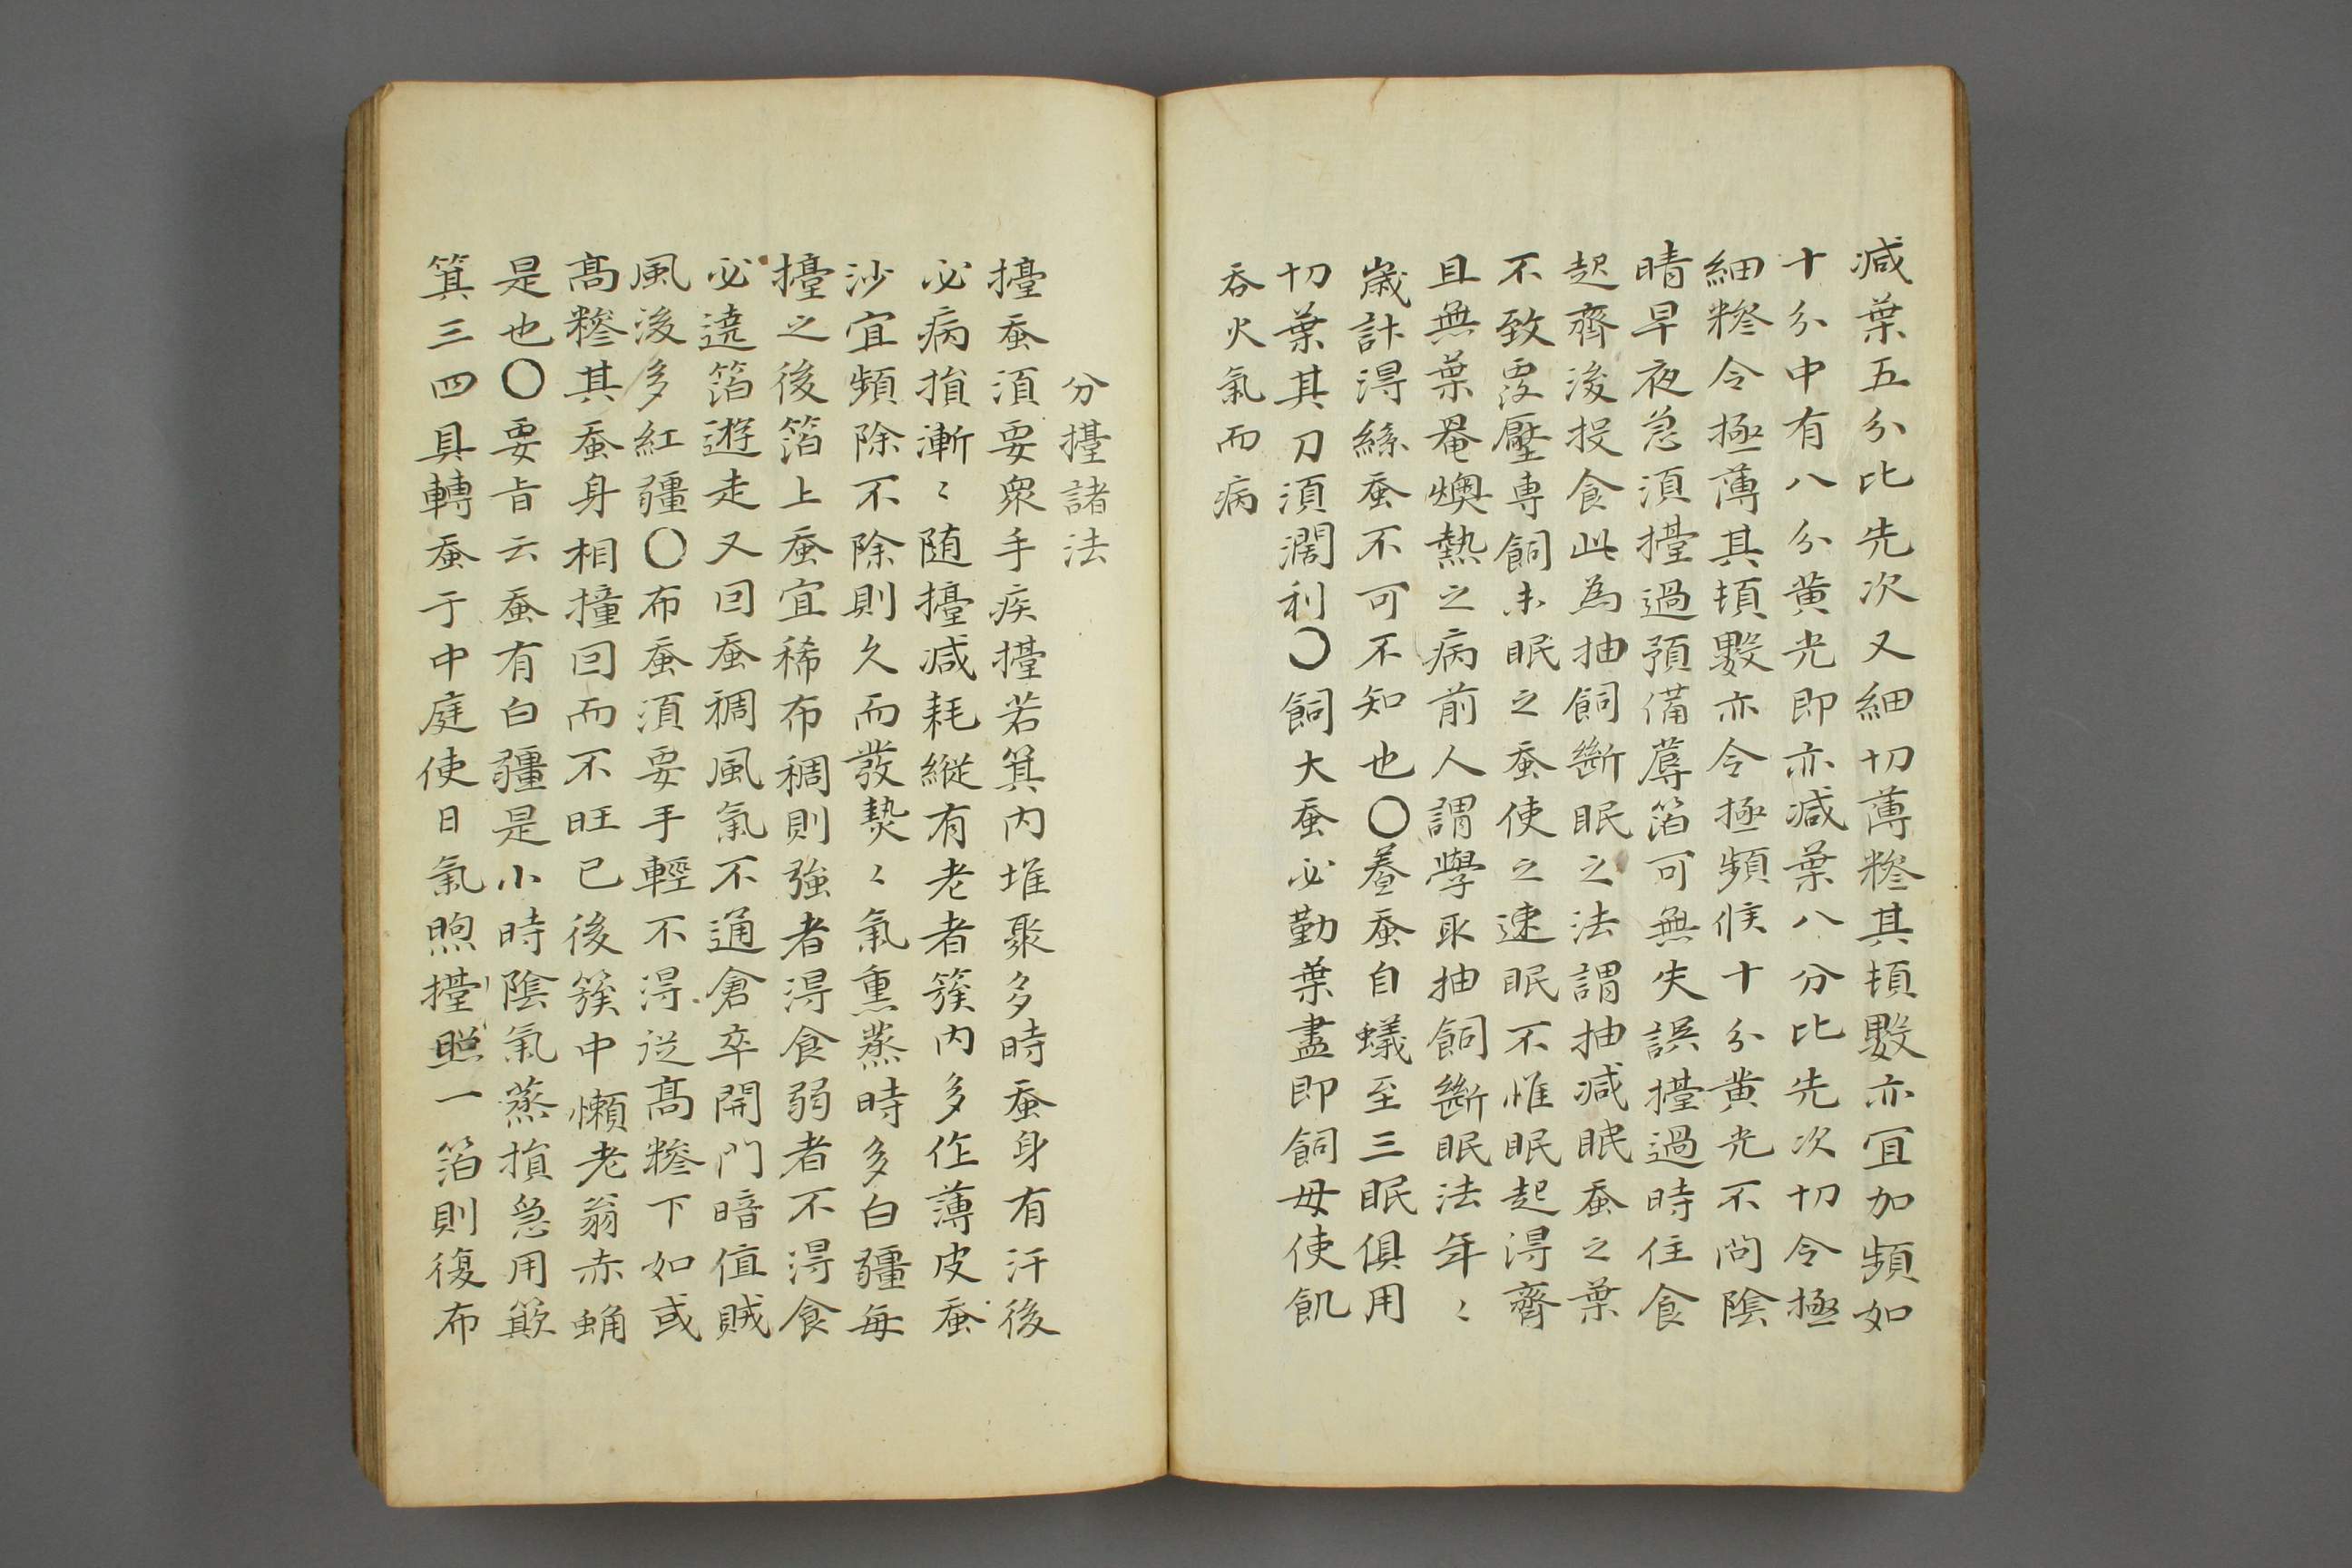 减葉五分比先次又細切薄糝其頓數亦宜加頻如
十分中有八分黄光即亦减葉八分比先次切令極
細糝令極薄其頓數亦令極頻候十分黄光不問陰
晴早夜急湏擡過預備蓐箔可無失誤擡過時住食
起齊後投食此為抽飼斷眠之法謂抽减眠蚕之葉
不致覆壓専飼未眠之蚕使之速眠不惟眠起得齊
且無葉罨燠熱之病前人謂學取抽飼斷眠法年〻
歲計得絲蚕不可不知也〇養蚕自蟻至三眠俱用
切葉其刀湏濶利〇飼大蚕必勤葉盡即飼毋使飢
吞火氣而病
分擡諸法
擡蚕湏要衆手疾擡若箕内堆聚多時蚕身有汗後
必病損漸〻随擡减耗縦有老者簇内多作薄皮蚕
沙宜頻除不除則久而發𤍠〻氣熏蒸時多白殭每
擡之後箔上蚕宜稀布稠則強者得食弱者不得食
必遶箔遊走又囘蚕稠風氣不通倉卒開門暗值賊
風後多紅殭〇布蚕湏要手輕不得從髙糝下如或
髙糝其蚕身相撞囘而不旺已後簇中懶老翁赤蛹
是也〇要旨云蚕有白殭是小時陰氣蒸損急用簸
箕三四具轉蚕于中庭使日氣煦擡照一箔則復布